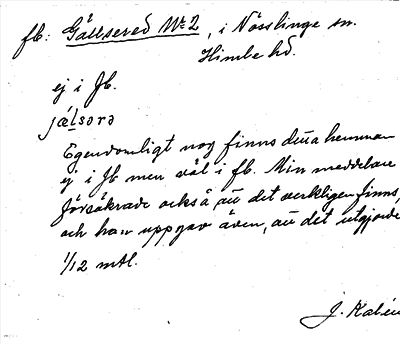 fb: Gällsered No 2, i Nösslinge sn.
Himle hd.
ej i Jb.
jæ̀lsərə
Egendomligt nog finns denna hemman
ej i Jb men väl i fb. Min meddelare
försäkrade också, att det verkligen finns,
och han uppgav även, att det utgjorde
1/12 mtl.
J. Kalén